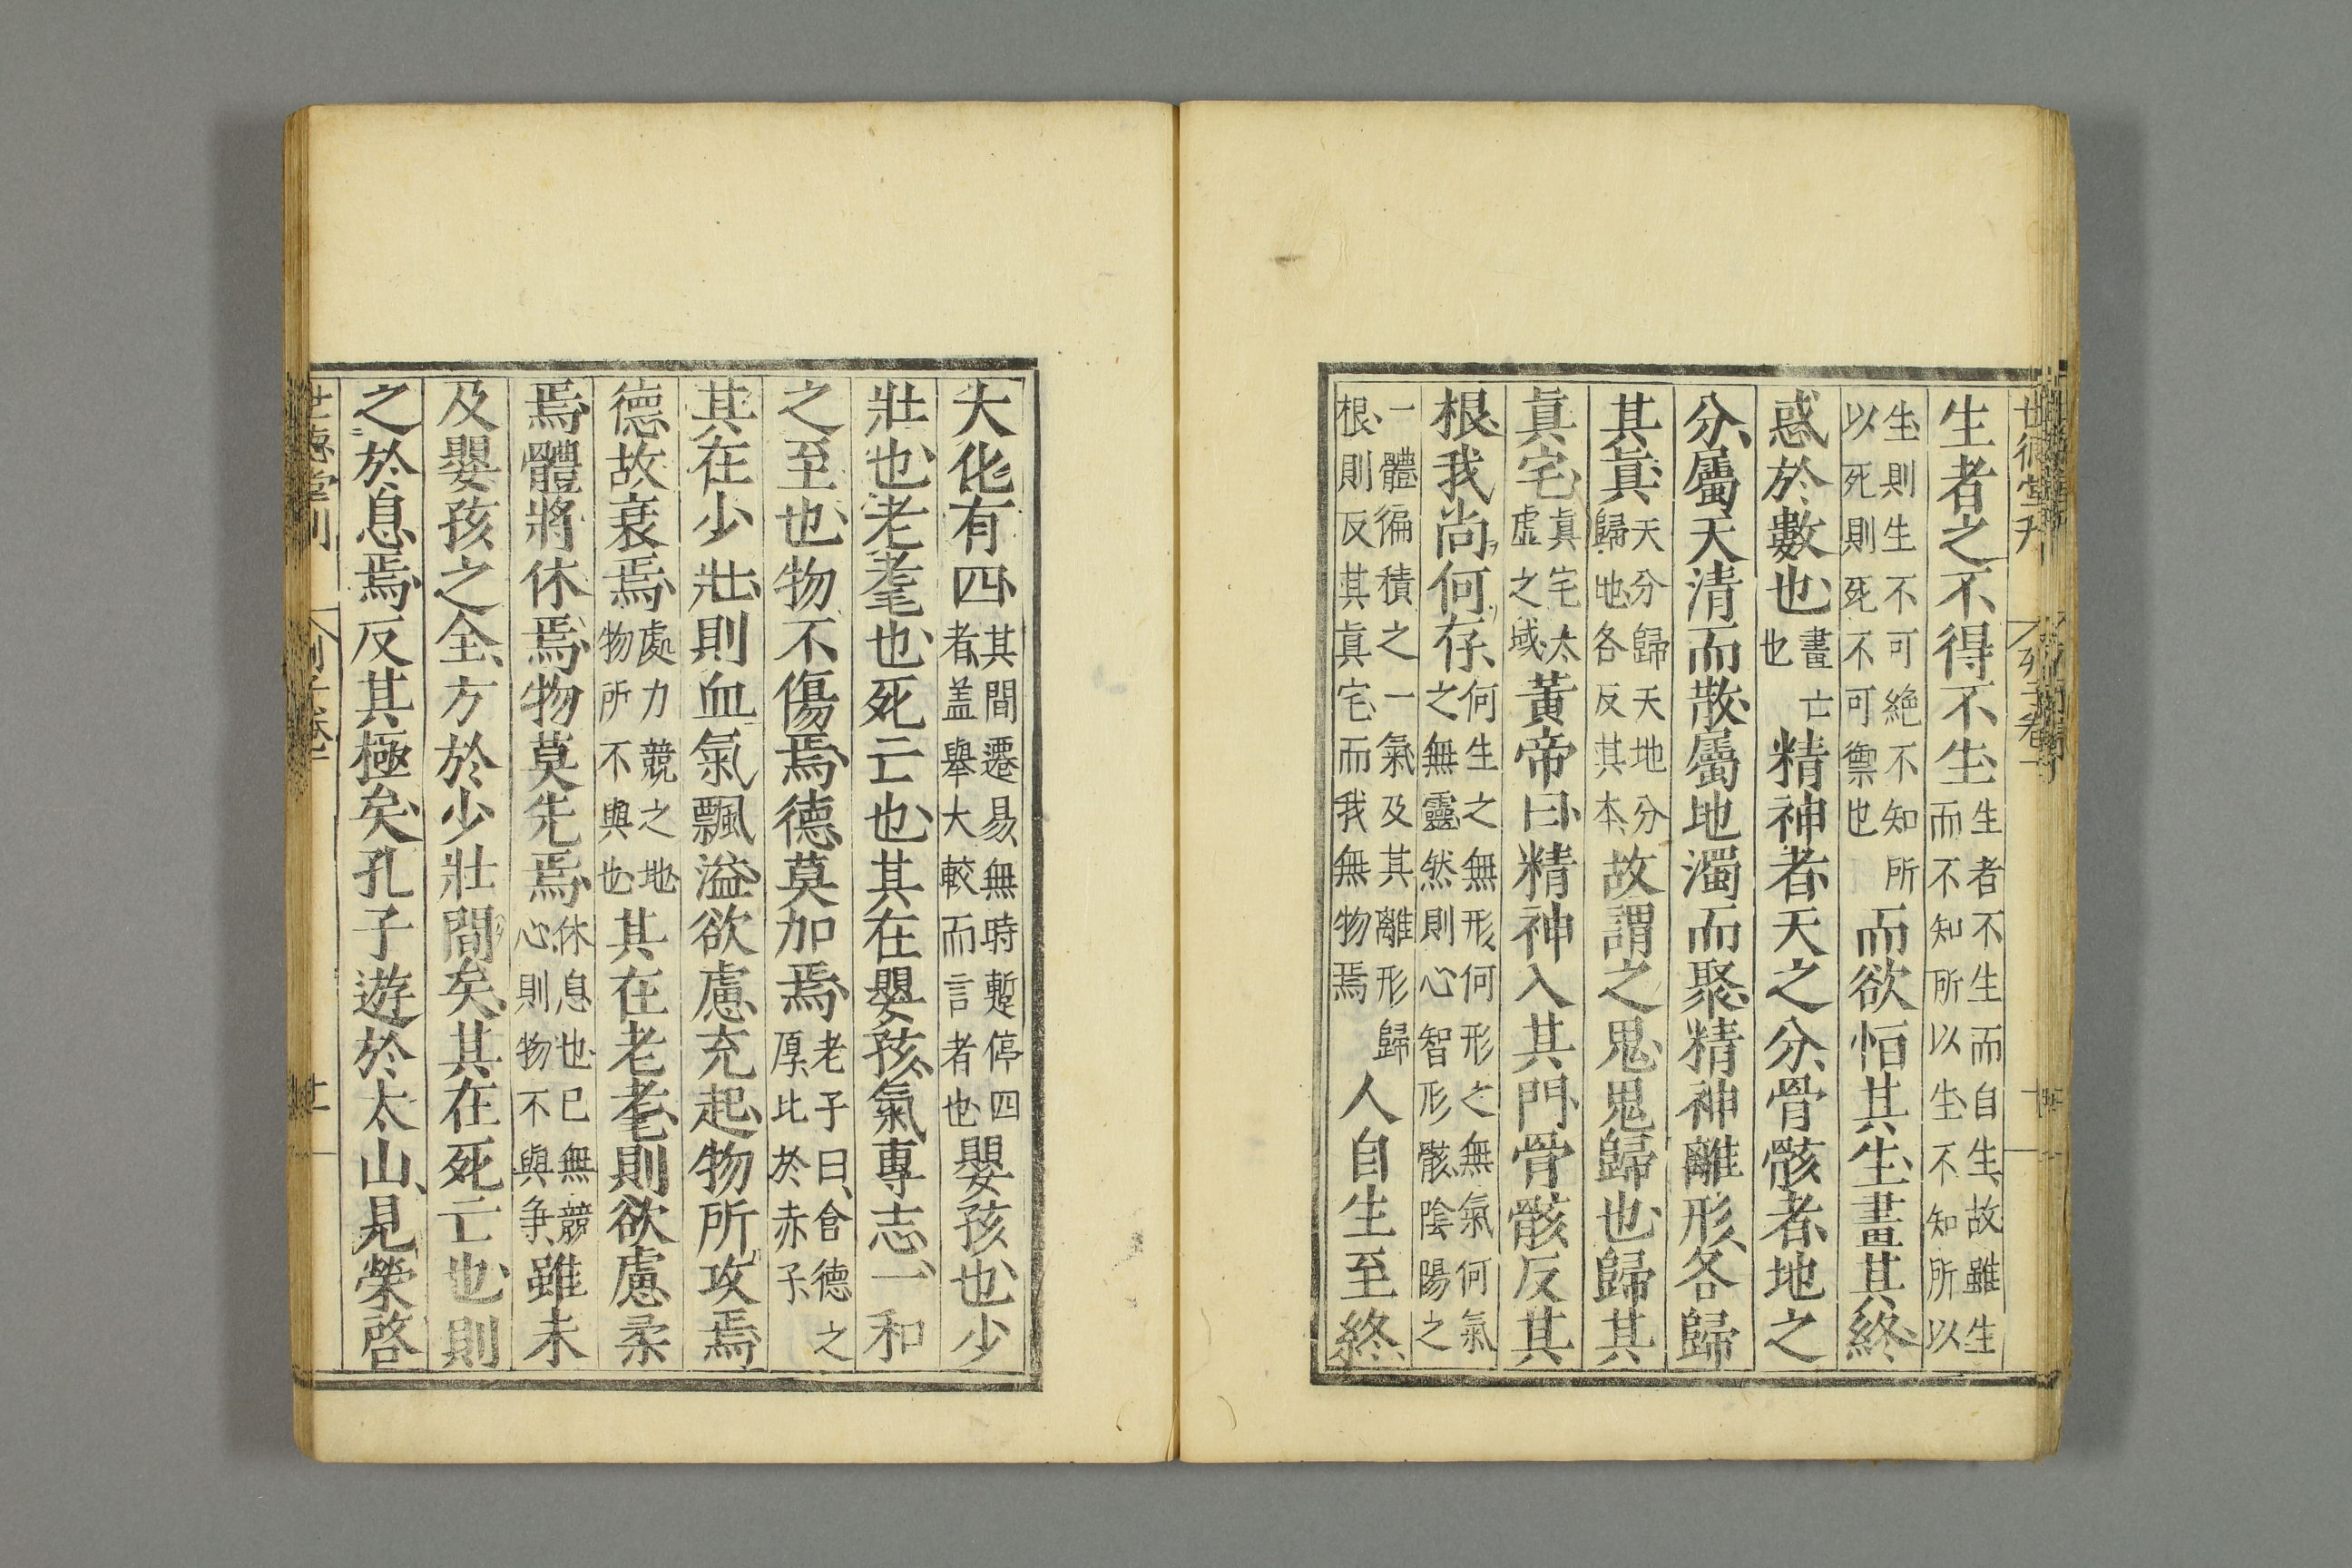 生者之不得不生生者不生而自生故雖生而不知所以生不知所以
生則生不可絶不知所以死則死不可禦也而欲恒其生畫其終
惑於數也畫亡也精神者天之分骨骸者地之
分屬天清而散屬地濁而聚精神離形各歸
其眞天分歸天地分歸地各反其本故謂之鬼鬼歸也歸其
眞宅眞宅太虛之域黃帝曰精神入其門骨骸反其
根我尚何存何生之無形何形之無氣何氣之無靈然則心智形骸陰陽之
一體徧積之一氣及其離形歸根則反其眞宅而我無物焉人自生至終
大化有四其間遷易無時蹔停四者盖舉大較而言者也嬰孩也少
壯也老耄也死亡也其在嬰孩氣專志一和
之至也物不傷焉德莫加焉老子曰含德之厚比於赤子
其在少壯則血氣飄溢欲慮充起物所攻焉
德故衰焉處力競之地物所不與也其在老耄則欲慮柔
焉體將休焉物莫先焉休息也已無競心則物不與争雖未
及嬰孩之全方於少壯間矣其在死亡也則
之於息焉反其極矣孔子遊於太山見榮啓
世德堂刊